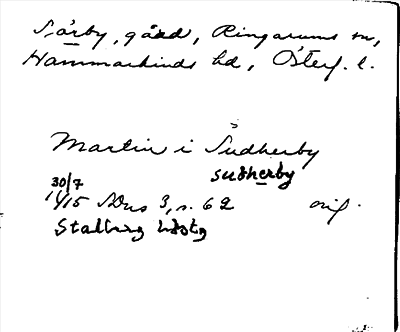 Sörby, gård, Ringarums sn,
Hammarkinds hd, Österg. l.
Martin i Sudherby
sudherby
30/7
1415 SDns 3, s. 62 orig.
Stallarg hdstg